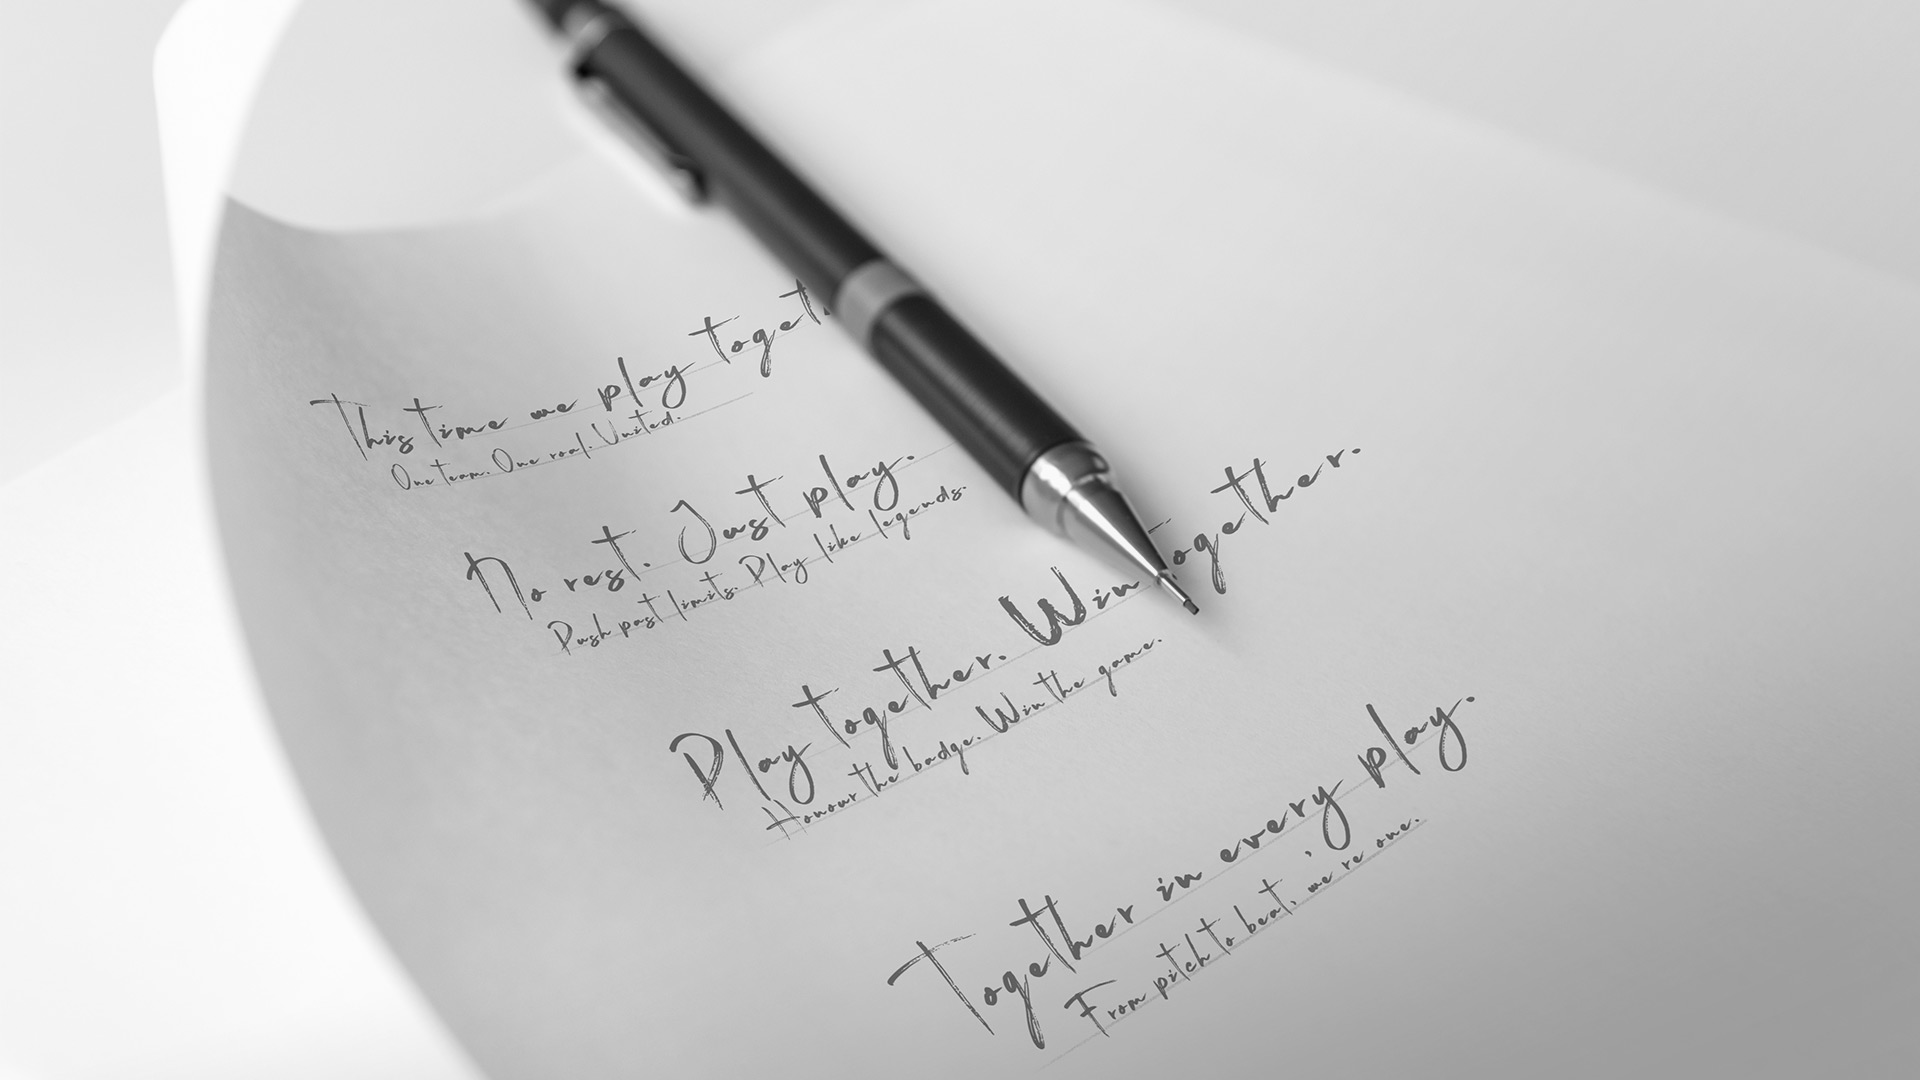 This time we play togeth
One team. One roal. United.
No rest. Just play.
Push past limits. Play like legends.
Play together. Win together.
Honour the badge. Win the game.
Together in every play.
From pitch to beat, we're one.